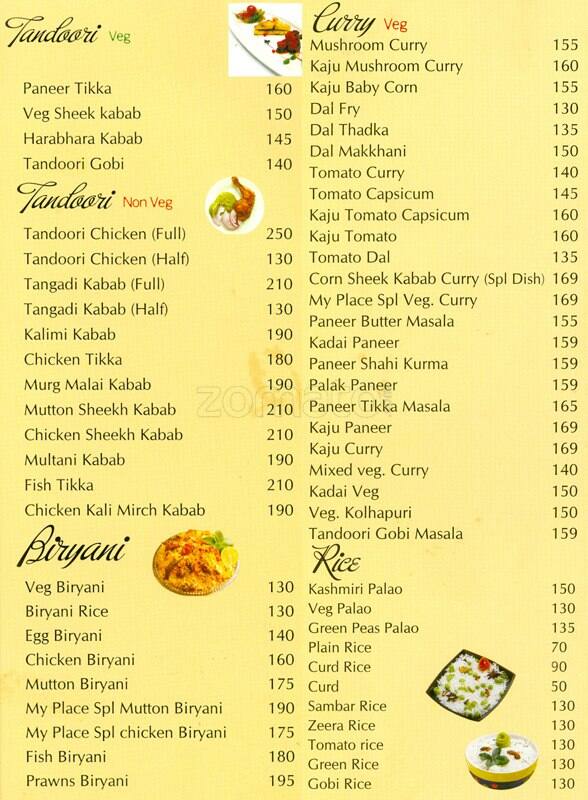 Tandoori Veg
Paneer Tikka 160
Veg Sheek kabab 150
Harabhara Kabab 145
Tandoori Gobi 140
Tandoori Non Veg
Tandoori Chicken (Full) 250
Tandoori Chicken (Half) 130
Tangadi Kabab (Full) 210
Tangadi Kabab (Half) 130
Kalimi Kabab 190
Chicken Tikka 180
Murg Malai Kabab 190
Mutton Sheekh Kabab 210
Chicken Sheekh Kabab 210
Multani Kabab 190
Fish Tikka 210
Chicken Kali Mirch Kabab 190
Biryani
Veg Biryani 130
Biryani Rice 130
Egg Biryani 140
Chicken Biryani 160
Mutton Biryani 175
My Place Spl Mutton Biryani 190
My Place Spl chicken Biryani 175
Fish Biryani 180
Prawns Biryani 195
Curry Veg
Mushroom Curry 155
Kaju Mushroom Curry 160
Kaju Baby Corn 155
Dal Fry 130
Dal Thadka 135
Dal Makkhani 150
Tomato Curry 140
Tomato Capsicum 145
Kaju Tomato Capsicum 160
Kaju Tomato 160
Tomato Dal 135
Corn Sheek Kabab Curry (Spl Dish) 169
My Place Spl Veg. Curry 169
Paneer Butter Masala 155
Kadai Paneer 159
Paneer Shahi Kurma 159
Palak Paneer 159
Paneer Tikka Masala 165
Kaju Paneer 169
Kaju Curry 169
Mixed veg. Curry 140
Kadai Veg 150
Veg. Kolhapuri 150
Tandoori Gobi Masala 159
Rice
Kashmiri Palao 150
Veg Palao 130
Green Peas Palao 135
Plain Rice 70
Curd Rice 90
Curd 50
Sambar Rice 130
Zeera Rice 130
Tomato rice 130
Green Rice 130
Gobi Rice 130
zomato